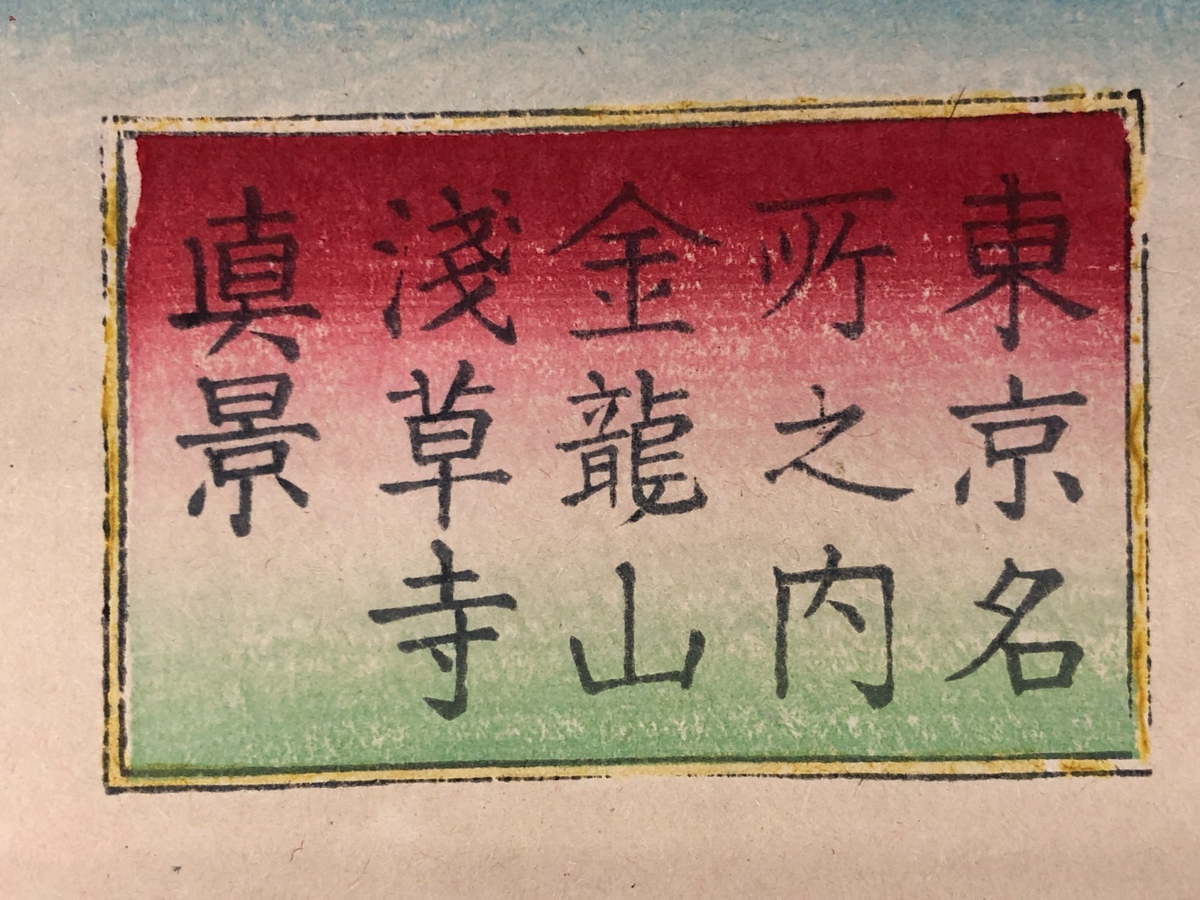 東京名
所之内
金龍山
淺草寺
真景